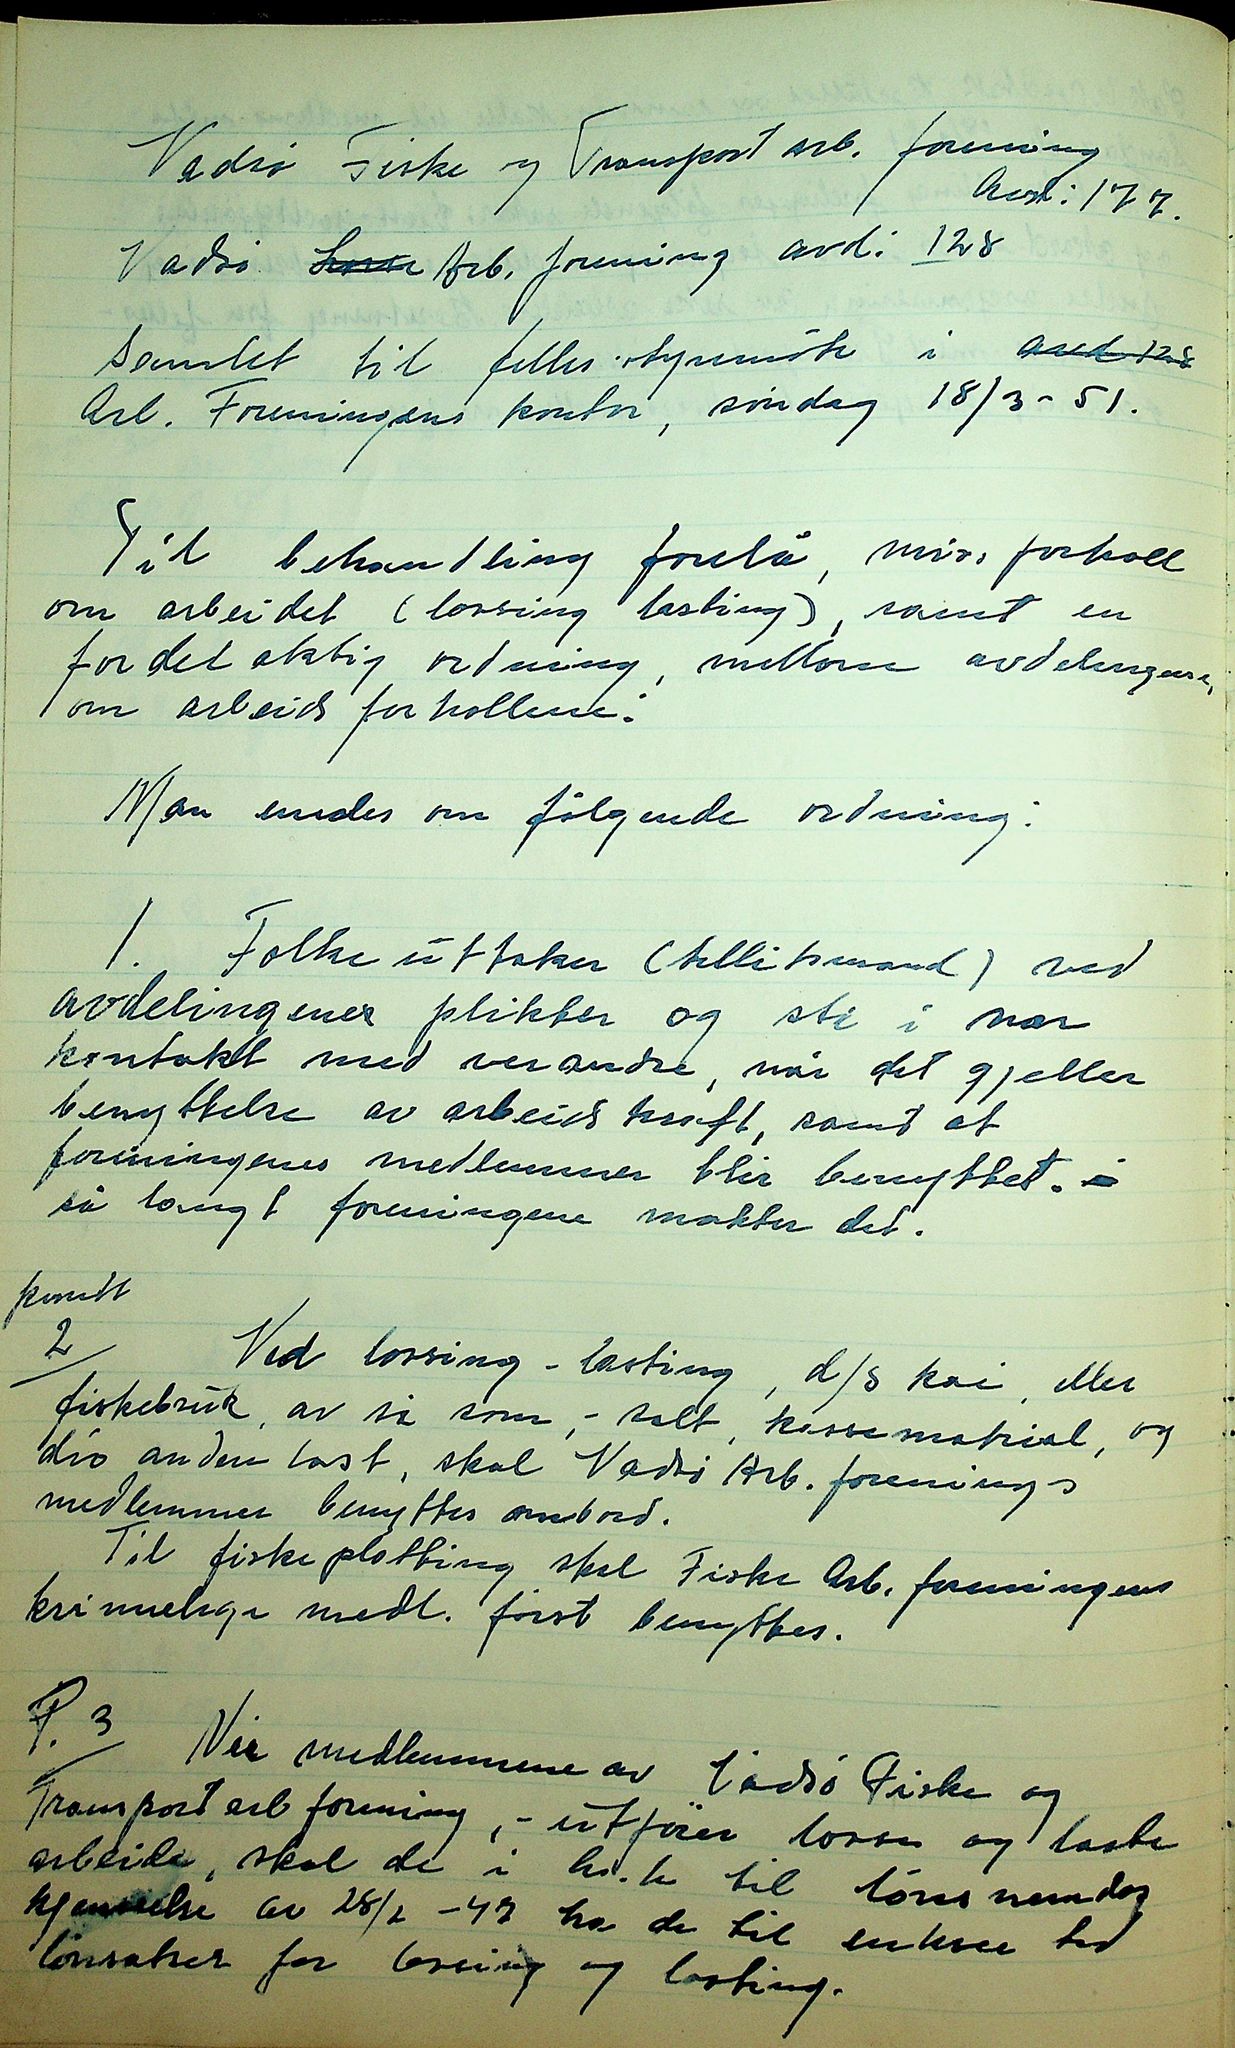 Vadsø Fiske og Transport arb. forening
Avd: 177.
Vadsø Arb. forening avd: 128
Samlet til felles styremöte i avd 128
Arb. Foreningens kontor, söndag 18/3-51.
Til behandling forelå, miss forholl
om arbeidet (lossing lasting), samt en
fordelaktig ordning, mellom avdelingene,
om arbeids forhollene:
Man enedes om følgende ordning:
1. Folke uttaker (tillitsmand) ved
avdelingenes plikter og stå i nær
kontakt med verandre, når det gjeller
benyttelse av arbeidskraft, samt at
foreningenes medlemmer blir benyttet.
så langt foreningene makter det.
punkt
2 Ved lossing - lasting, d/s kai, eller
fiskebruk, av så som, - salt, kassematrial, og
div anden last, skal Vadsø Arb. forenings
medlemmer benyttes ombord.
Til fiskeplotting skal Fiske Arb. foreningens
kvinnelige medl. först benyttes.
P. 3 Når medlemmene av Vadsö Fiske og
Transport arb forening, - utfører losse og laste
arbeide, skal de i h.h. til lønsnemdas
kjennelse av 28/2 -47 ha de til enhver tid
lönsatser for lossing og lasting.